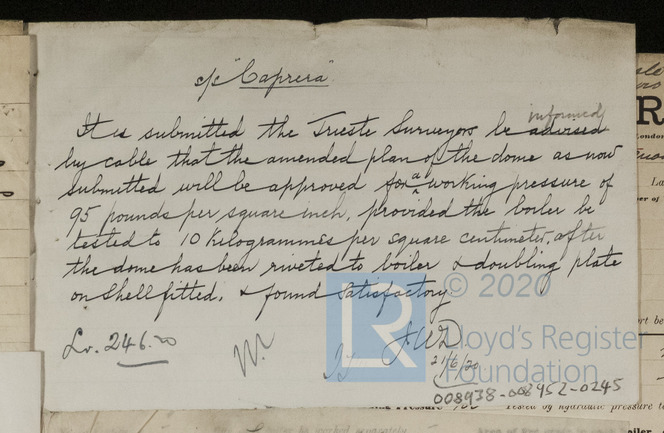 s/s "Caprera"
It is submitted the Trieste Surveyors be advised informed
by cable that the amended plan of the dome as now
submitted will be approved for a working pressure of
95 pounds per square inch, provided the boiler be
tested to 10 Kilogrammes per square centimeter, after
the dome has been riveted to boiler & doubling plate
on shell fitted, & found satisfactory
© 2020
LR
Lloyd's Register
Foundation
21/6/20
008938-008952-0245
Tested by hydraulic pressure to